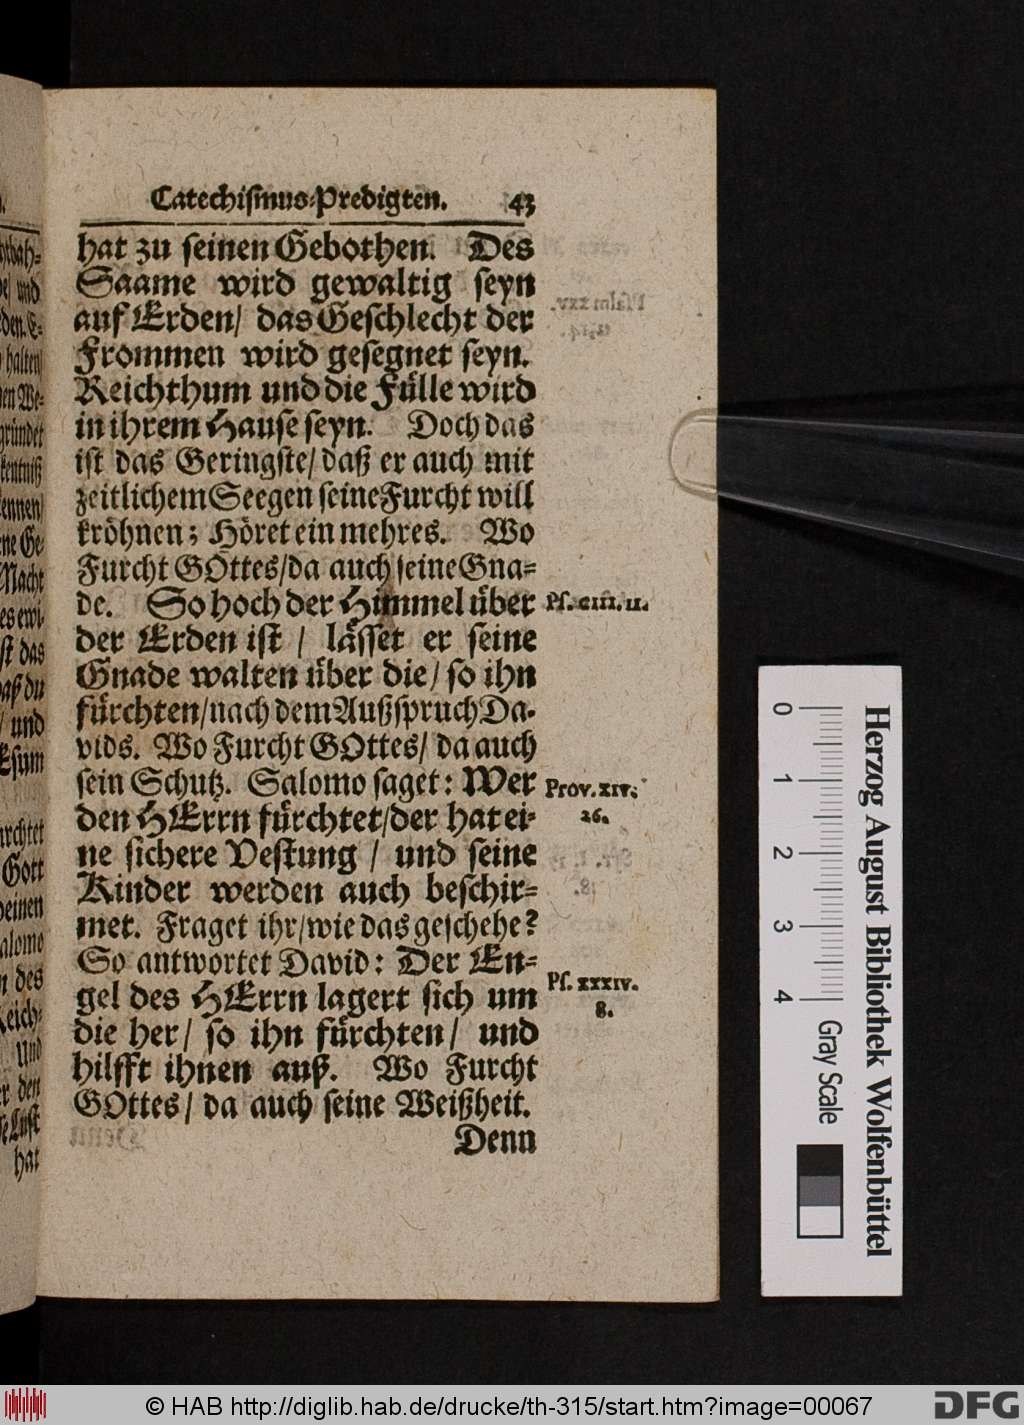 Catechismus-Predigten. 43
hat zu seinen Gebothen. Des
Saame wird gewaltig seyn
auf Erden/ das Geschlecht der
Frommen wird gesegnet seyn.
Reichthum und die Fülle wird
in ihrem Hause seyn. Doch das
ist das Geringste/ daß er auch mit
zeitlichem Seegen seine Furcht will
kröhnen; Höret ein mehres. Wo
Furcht GOttes/ da auch seine Gna-
de. So hoch der Himmel über
Ps. ciii. 11.
der Erden ist / lässet er seine
Gnade walten über die/ so ihn
fürchten/ nach dem Außspruch Da-
vids. Wo Furcht GOttes/ da auch
sein Schutz. Salomo saget: Wer
Prov. xiv.
den HErrn fürchtet/ der hat ei-
26.
ne sichere Vestung / und seine
Kinder werden auch beschir-
met. Fraget ihr/ wie das geschehe?
So antwortet David: Der En-
gel des HErrn lagert sich um
Ps. xxxiv.
8.
die her/ so ihn fürchten/ und
hilfft ihnen auß. Wo Furcht
GOttes/ da auch seine Weißheit.
Denn
bah-
und
den. E-
halten
en We-
gründet
kentniß
ennen/
ne Ge-
Macht
es ewi-
st das
aß du
/ und
Esum
rchtet
Gott
einen
alomo
n des
Reich-
Und
er den
e Lust
hat
0 1 2 3 4
Gray Scale
Herzog August Bibliothek Wolfenbüttel
© HAB http://diglib.hab.de/drucke/th-315/start.htm?image=00067
DFG